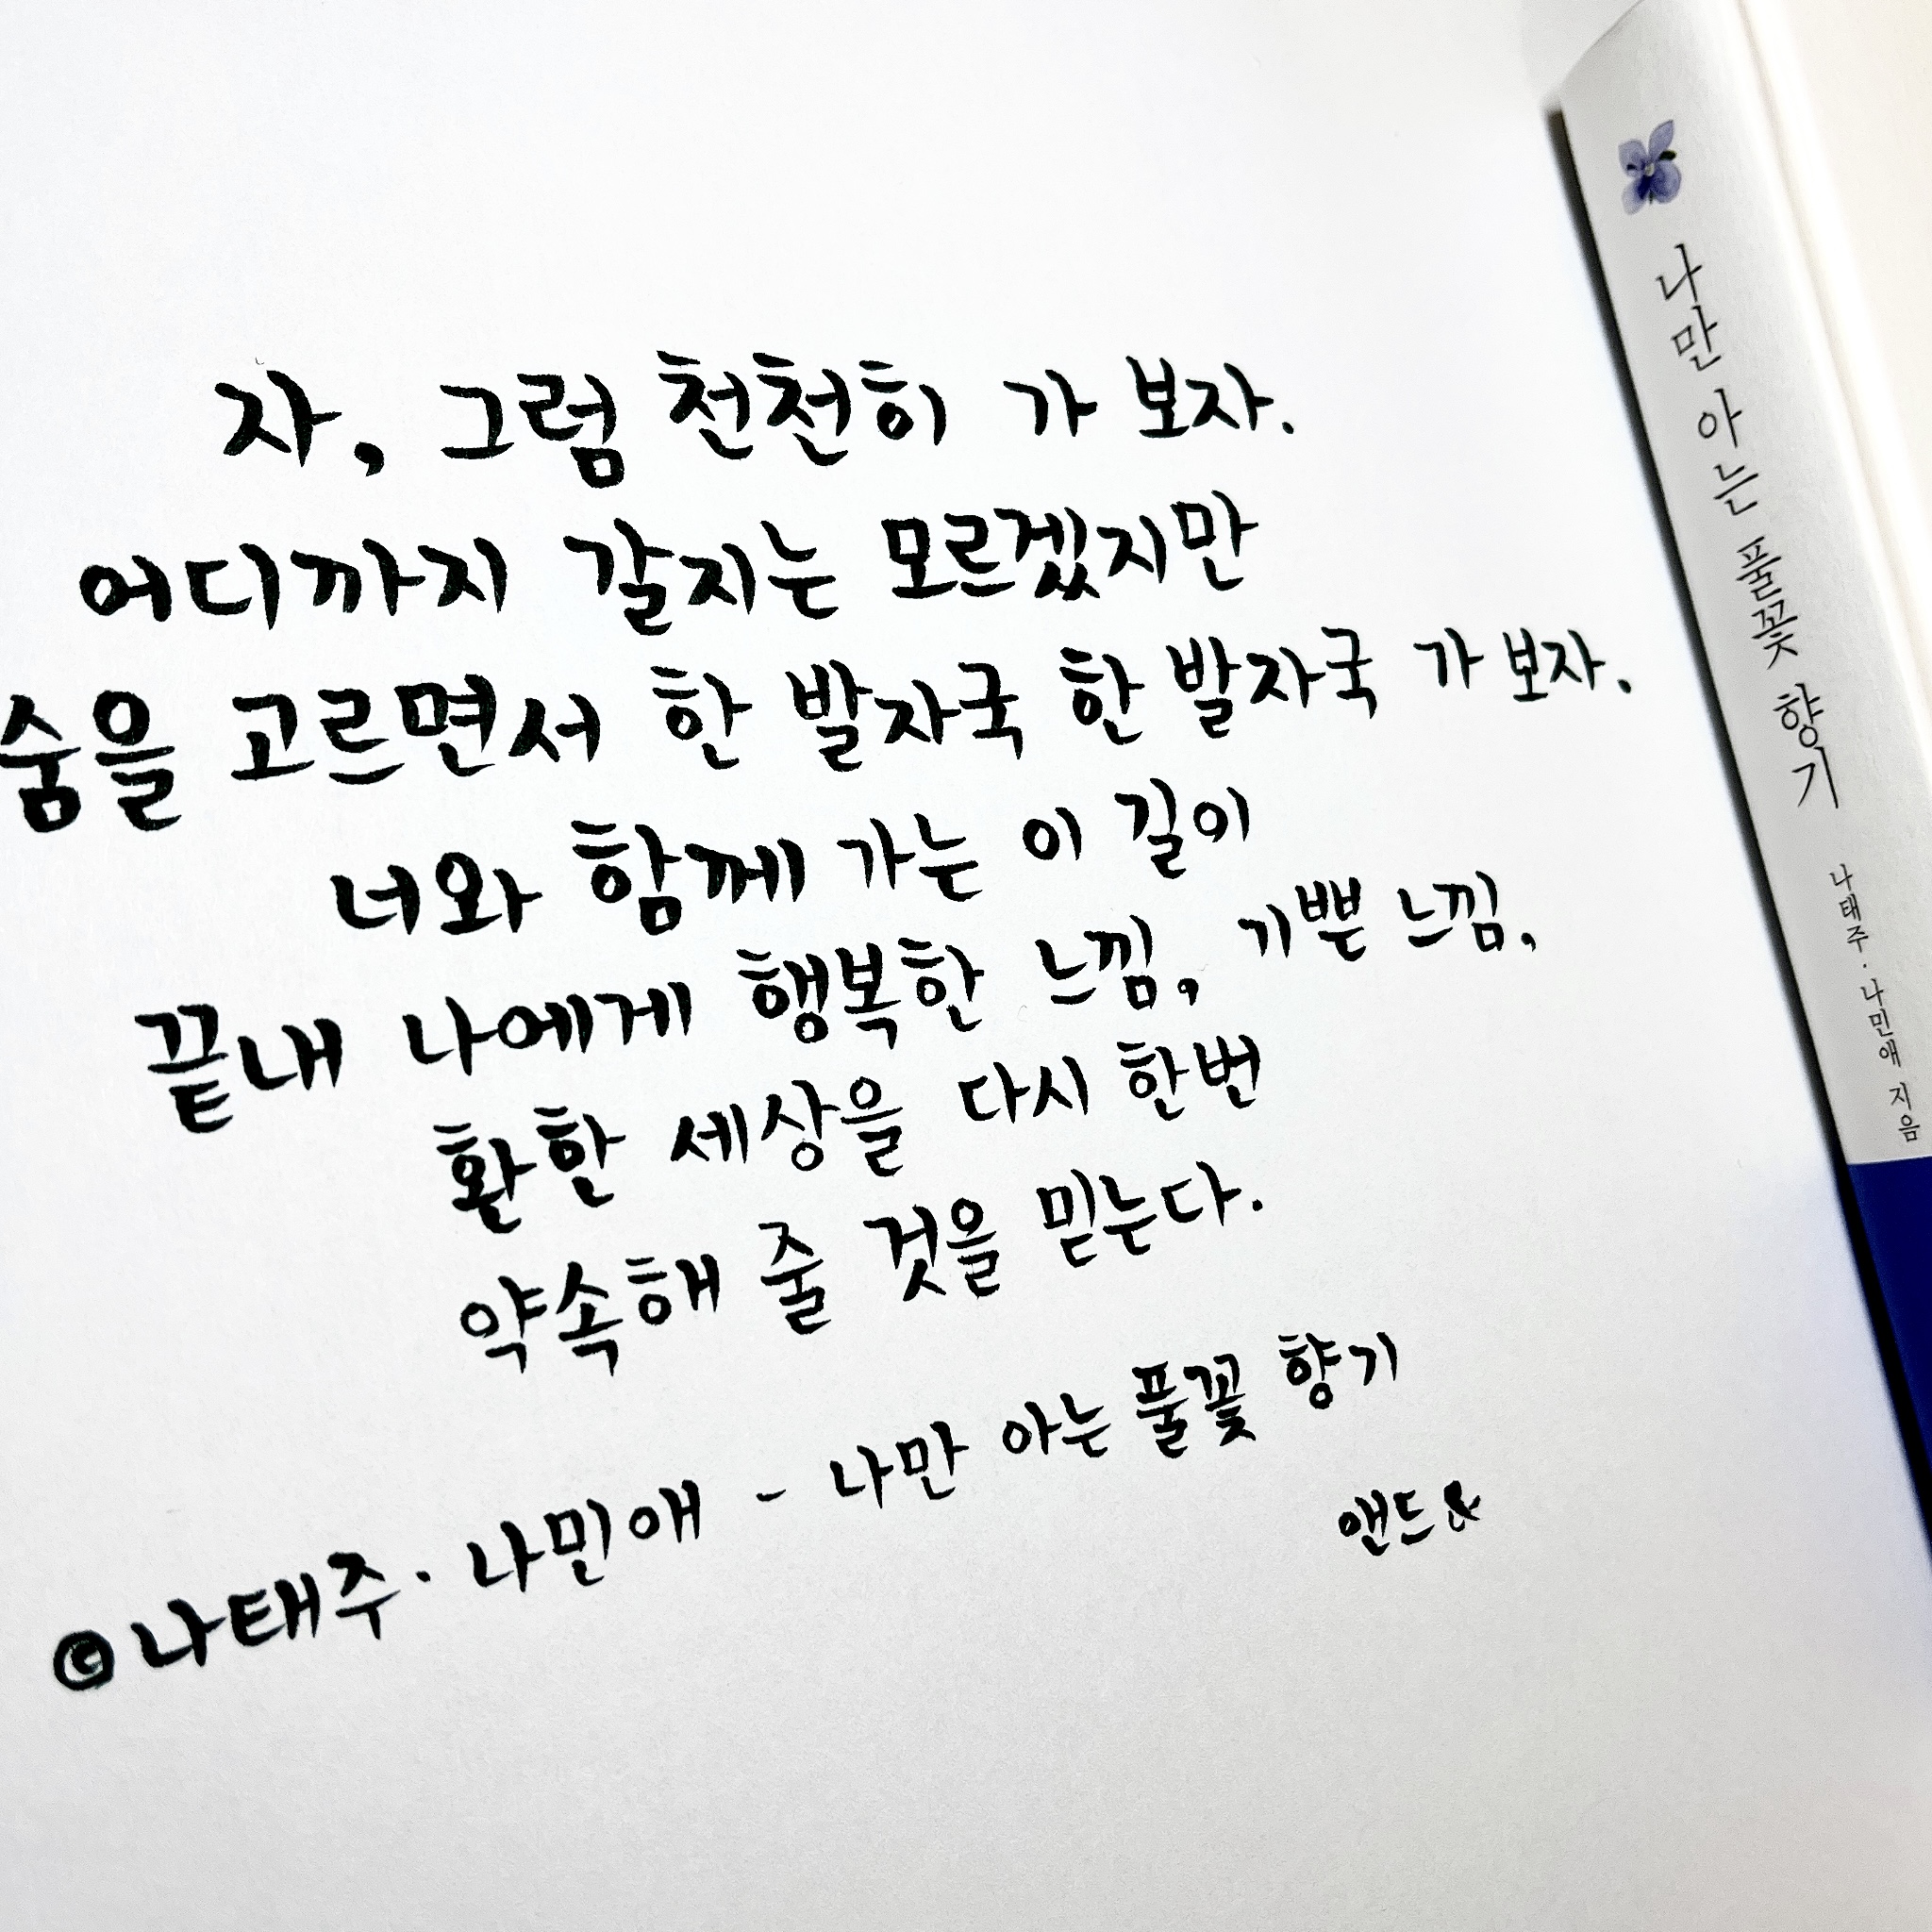 자, 그럼 천천히 가 보자.
어디까지 갈지는 모르겠지만
숨을 고르면서 한 발자국 한 발자국 가 보자.
너와 함께 가는 이 길이
끝내 나에게 행복한 느낌, 기쁜 느낌,
환한 세상을 다시 한번
약속해 줄 것을 믿는다.
©나태주·나민애 - 나만 아는 풀꽃 향기
앤드&
나만 아는 풀꽃 향기 나태주·나민애 지음